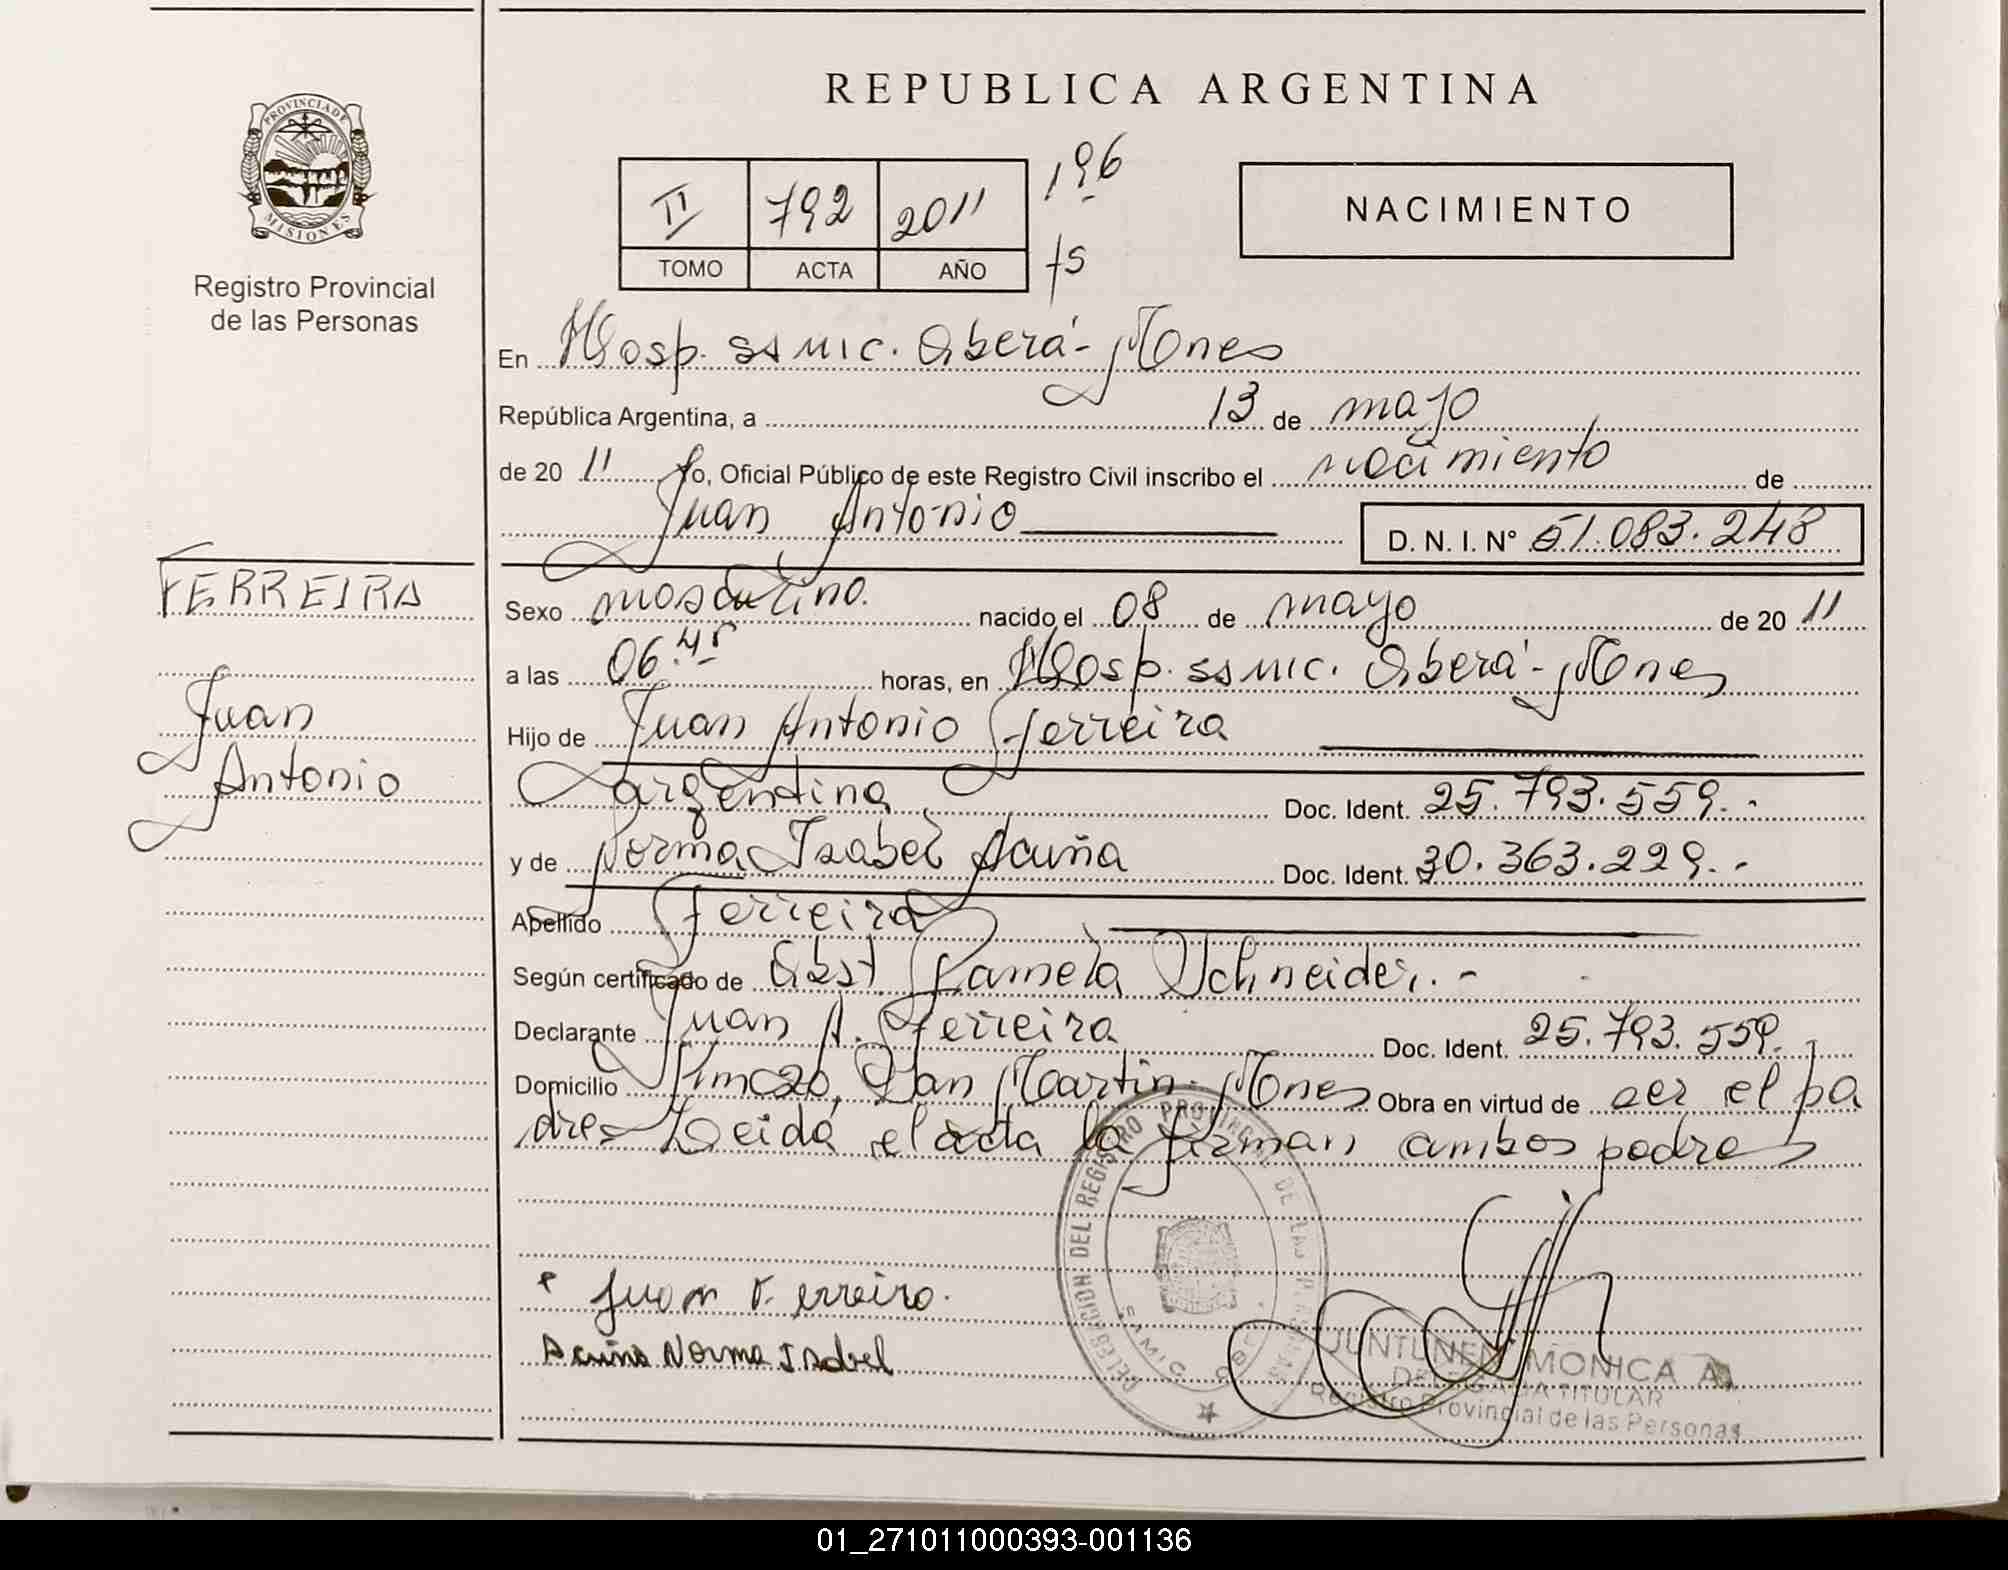 REPUBLICA ARGENTINA
PROVINCIA DE
MISIONES
Registro Provincial
de las Personas
II 792 2011 196
TOMO ACTA AÑO fs
NACIMIENTO
En Hosp. ssmic. Oberá - Mones
República Argentina, a 13 de mayo
de 20 11 Yo, Oficial Público de este Registro Civil inscribo el nacimiento de
Juan Antonio
D. N. I. N° 51.083.248
FERREIRA
Juan
Antonio
Sexo masculino. nacido el 08 de mayo de 20 11
a las 06.45 horas, en Hosp. ssmic. Oberá - Mones
Hijo de Juan Antonio Ferreira
argentina Doc. Ident. 25.793.559.-
y de Norma Isabel Acuña Doc. Ident. 30.363.229.-
Apellido Ferreira
Según certificado de Obst Pamela Schneider.-
Declarante Juan A. Ferreira Doc. Ident. 25.793.559.
Domicilio San Martin - Mones Obra en virtud de ser el pa
dre - Leida el acta la firman ambos padres
DELEGACION DEL REGISTRO PROVINCIAL DE LAS PERSONAS
SAMIC
* Juan Ferreira.
Acuña Norma Isabel
JUNTUNEN MONICA A.
DELEGADA TITULAR
Registro Provincial de las Personas
01_271011000393-001136